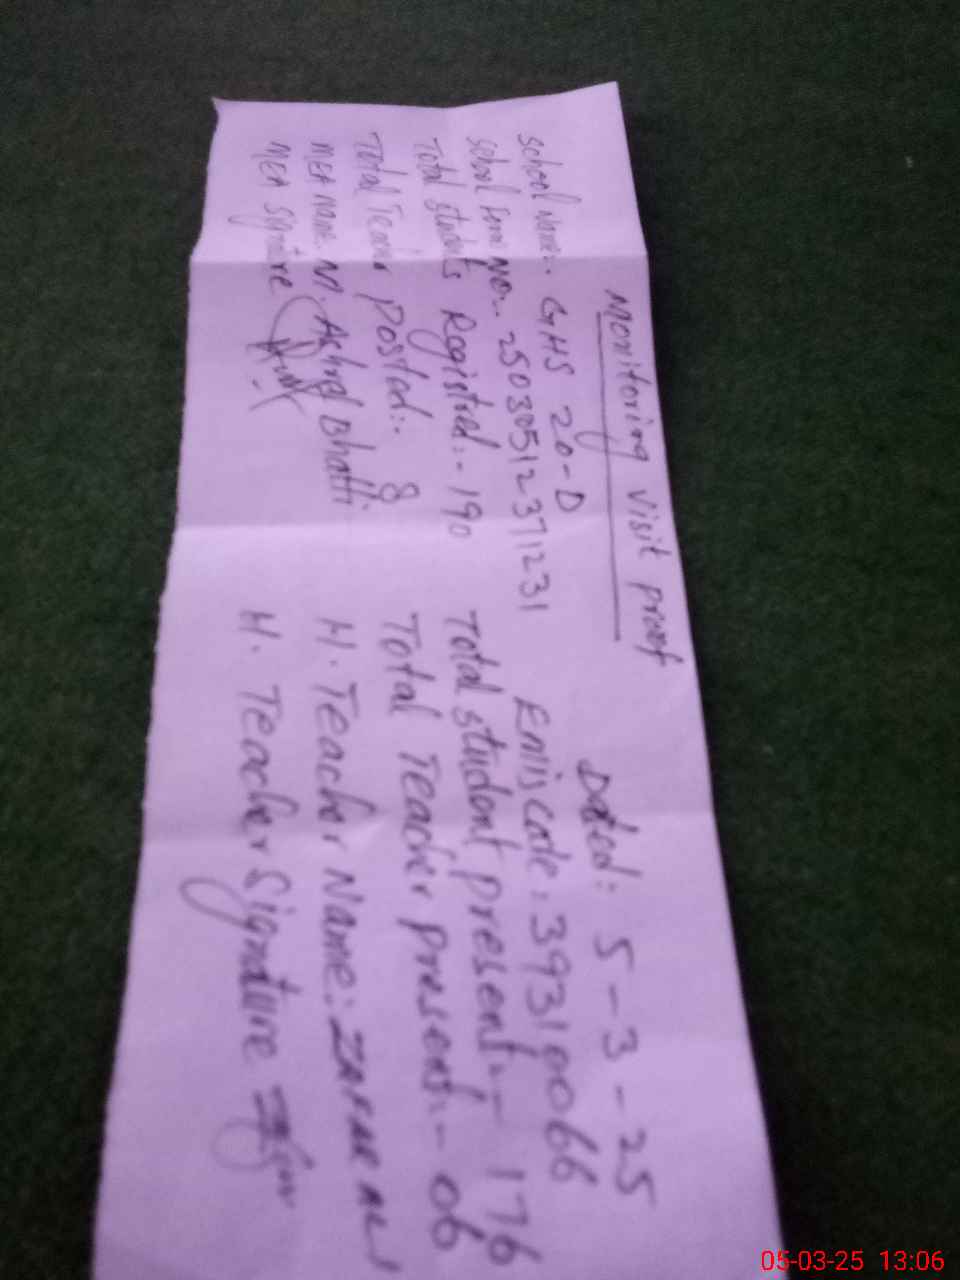 Monitoring visit proof
Dated: 5-3-25
School Name:. GHS 20-D
School form No.. 2503051237 1231
Emis code: 39310066
Total students Registred:- 190
Total student present:- 176
Total Teacher Posted:. 8
Total Teacher present:- 06
MEA Name. M. Bhatti
H. Teacher Name: ZAFAR ALI
MEA Signture
H. Teacher Signture
05-03-25 13:06